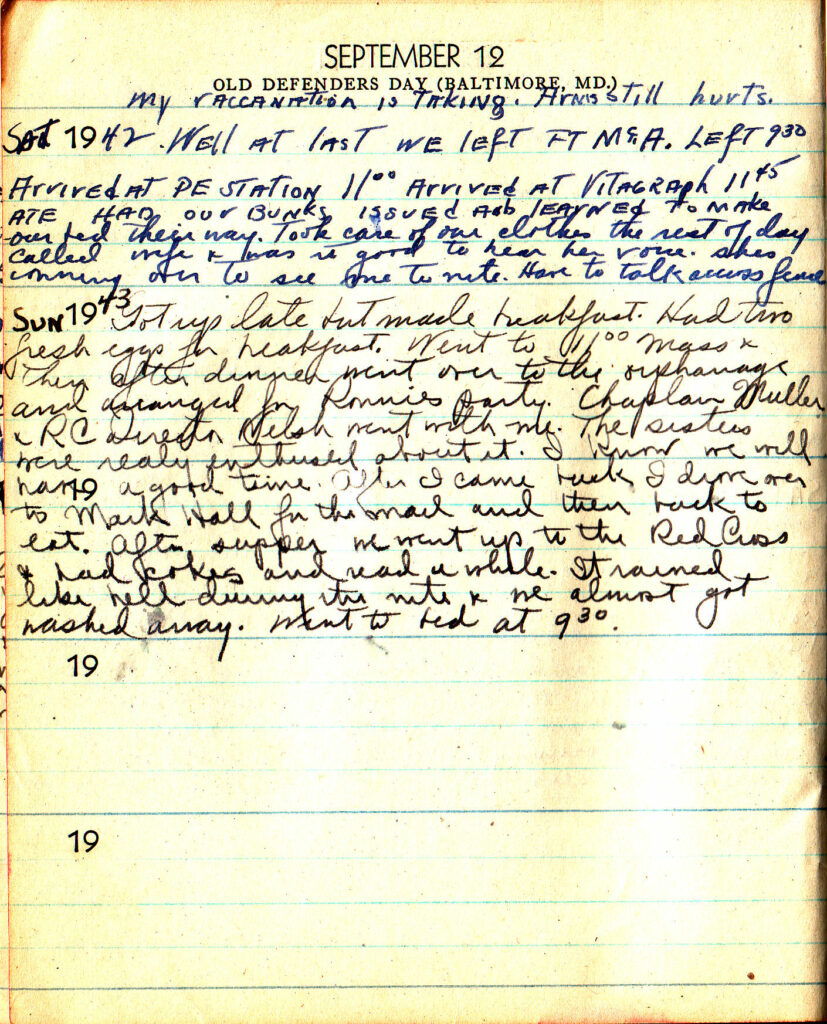 SEPTEMBER 12
OLD DEFENDERS DAY (BALTIMORE, MD.)
My vaccanation is taking. Arms still hurts.
Sat 1942. Well at last we left Ft M&A. Left 9³⁰
Arrived at PE Station 11⁰⁰ Arrived at Vitagraph 11⁴⁵
ate had our bunks issued and learned to make
our bed their way. Took care of our clothes the rest of day
called wife & was it good to hear her voice. shes
comming over to see me to nite. Have to talk across fence
Sun 1943 Got up late but made breakfast. Had two
fresh eggs for breakfast. Went to 11⁰⁰ mass &
then after dinner went over to the orphanage
and arranged for Ronnies party. Chaplain Muller
& RC Director Welsh went with me. The sisters
were realy enthused about it. I know we will
have a good time. After I came back I drove over
19
to Mark Hall for the mail and then back to
eat. After supper we went up to the Red Cross
& had cokes and read a while. It rained
like hell during the nite & we almost got
washed away. Went to bed at 9³⁰.
19
19